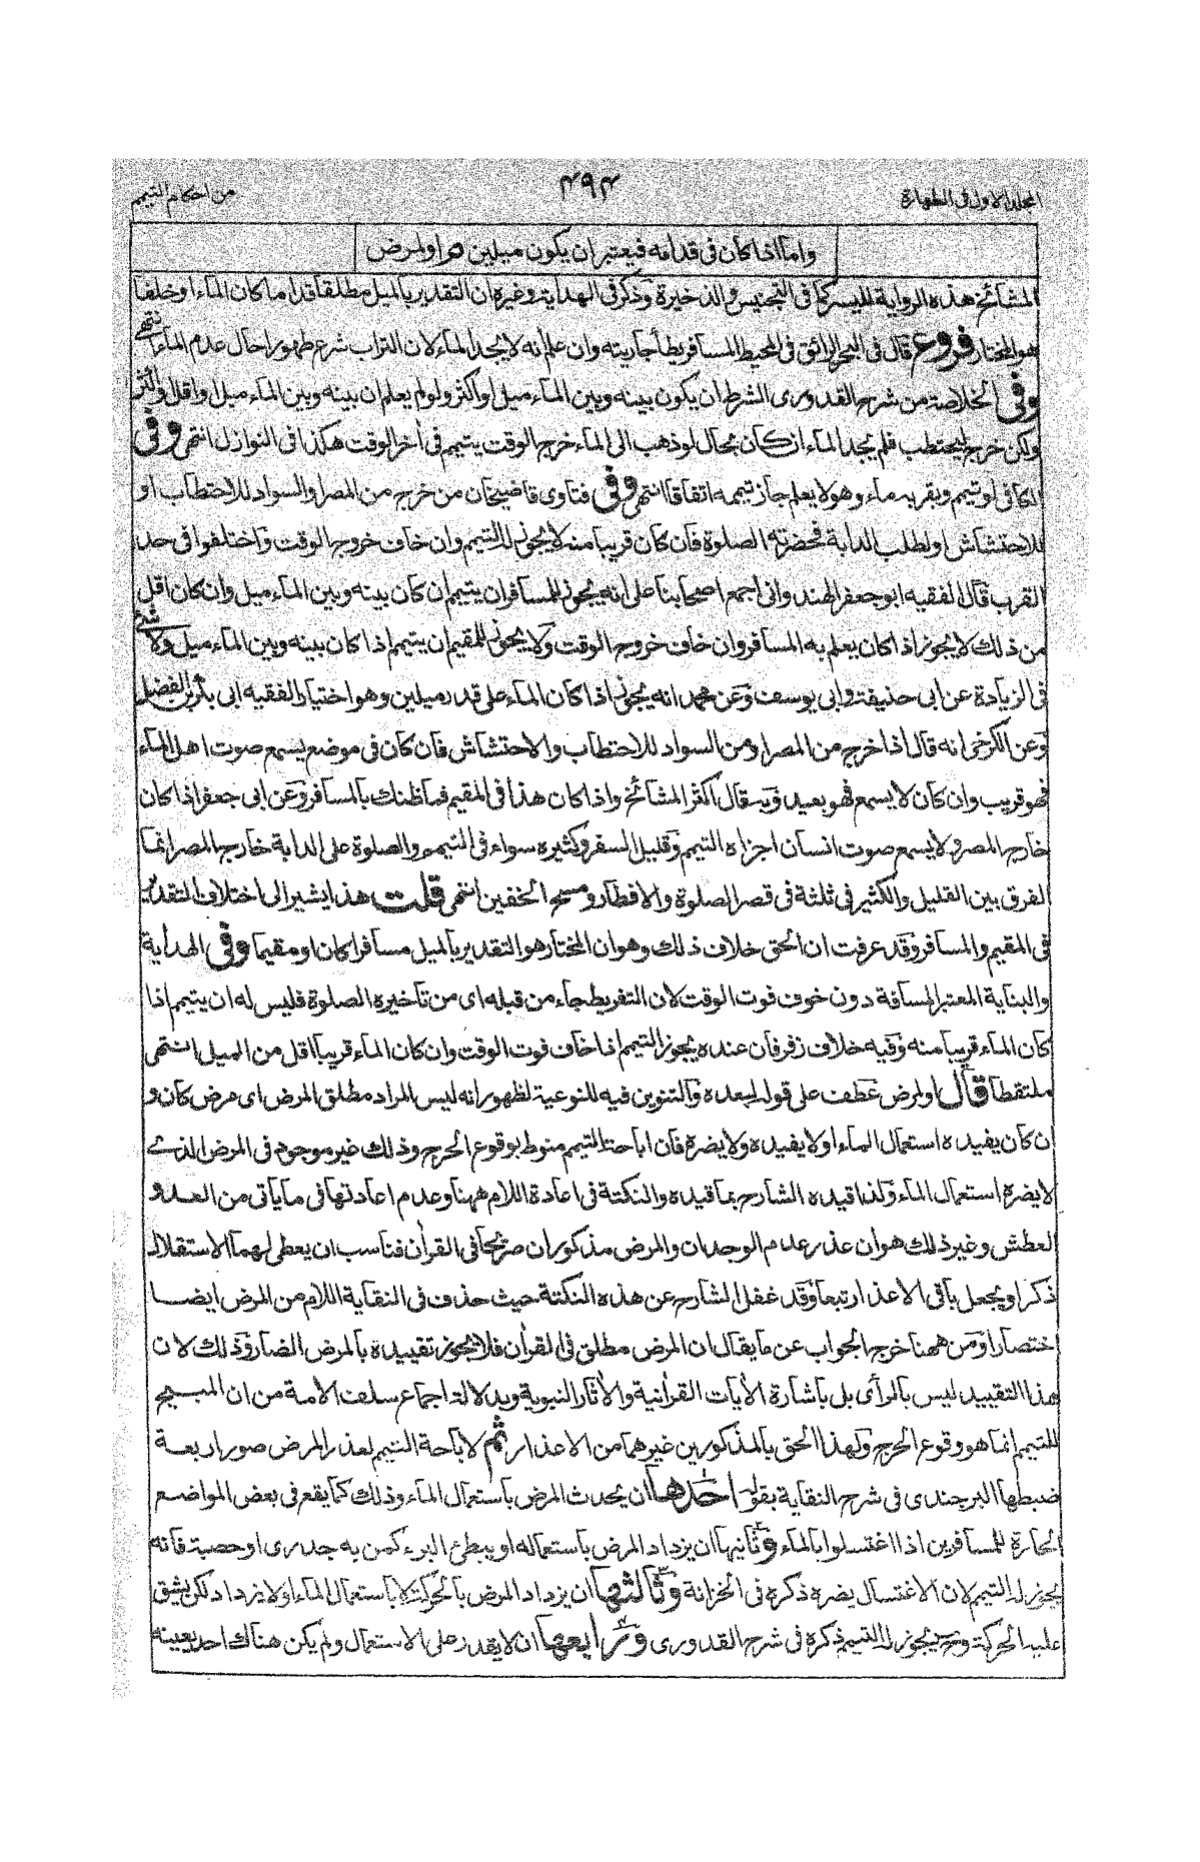 المجلد الاول فى الطهارة
۴۹۴
من احكام التيمم
واما اذا كان فى قدامه فيعتبر ان يكون ميلين هر او لمرض
المشائخ هذه الرواية لليسر كما فى التجنيس والذخيرة وذكر فى الهداية وغيره ان التقدير بالميل مطلقا قداما كان الماء او خلفا
هو المختار فروع قال فى البحر الرائق فى المحيط المسافر يطأ جاريته وان علم انه لا يجد الماء لان التراب شرع طهورا حال عدم الماء انتهى
وفى الخلاصة من شرح القدورى الشرط ان يكون بينه وبين الماء ميل او اكثر ولو لم يعلم ان بينه وبين الماء ميل او اقل او اكثر
ولكن خرج ليحتطب فلم يجد الماء ان كان بحال لو ذهب الى الماء خرج الوقت يتيمم فى اخر الوقت هكذا فى النوازل انتهى وفى
الكافى لو تيمم وبقربه ماء وهو لا يعلم جاز تيممه اتفاقا انتهى وفى فتاوى قاضيخان من خرج من المصر او السواد للاحتطاب او
للاحتشاش او لطلب الدابة فحضرته الصلوة فان كان قريبا منه لا يجوز له التيمم وان خاف خروج الوقت واختلفوا فى حد
القرب قال الفقيه ابو جعفر الهندوانى اجمع اصحابنا على انه يجوز للمسافر ان يتيمم ان كان بينه وبين الماء ميل وان كان اقل
من ذلك لا يجوز اذا كان يعلم به المسافر وان خاف خروج الوقت ولا يجوز للمقيم ان يتيمم اذا كان بينه وبين الماء ميل ولا شئ
فى الزيادة عن ابى حنيفة وابى يوسف وعن محمد انه يجوز اذا كان الماء على قدر ميلين وهو اختيار الفقيه ابى بكر بن الفضل
وعن الكرخى انه قال اذا خرج من المصر او من السواد للاحتطاب والاحتشاش فان كان فى موضع يسمع صوت اهل الماء
فهو قريب وان كان لا يسمع فهو بعيد وبه قال اكثر المشائخ واذا كان هذا فى المقيم فما ظنك بالمسافر وعن ابى جعفر اذا كان
خارج المصر ولا يسمع صوت انسان اجزاه التيمم وقليل السفر وكثيره سواء فى التيمم والصلوة على الدابة خارج المصر انما
الفرق بين القليل والكثير فى ثلثة فى قصر الصلوة والافطار ومسح الخفين انتهى قلت هذا يشير الى اختلاف التقدير
فى المقيم والمسافر وقد عرفت ان الحق خلاف ذلك وهو ان المختار هو التقدير بالميل مسافرا كان او مقيما وفى الهداية
والبناية المعتبر المسافة دون خوف فوت الوقت لان التفريط جاء من قبله اى من تاخيره الصلوة فليس له ان يتيمم اذا
كان الماء قريبا منه وفيه خلاف زفر فان عنده يجوز التيمم اذا خاف فوت الوقت وان كان الماء قريبا اقل من الميل انتهى
ملتقطا قال او لمرض عطف على قوله لبعده والتنوين فيه للنوعية لظهور انه ليس المراد مطلق المرض اى مرض كان و
ان كان يفيده استعمال الماء او لا يفيده ولا يضره فان اباحة التيمم منوط بوقوع الحرج وذلك غير موجود فى المرض الذى
لا يضره استعمال الماء ولذا قيده الشارح بما قيده والنكتة فى اعادة اللام ههنا وعدم اعادتها فى ما ياتى من العدو
العطش وغير ذلك هو ان عذر عدم الوجدان والمرض مذكوران صريحا فى القرآن فناسب ان يعطى لهما الاستقلال
ذكرا ويجعل باقى الاعذار تبعا وقد غفل الشارح عن هذه النكتة حيث حذف فى النقاية اللام من المرض ايضا
اختصارا ومن ههنا خرج الجواب عن ما يقال ان المرض مطلق فى القرآن فلا يجوز تقييده بالمرض الضار وذلك لان
هذا التقييد ليس بالرأى بل باشارة الآيات القرآنية والآثار النبوية وبدلالة اجماع سلف الامة من ان المبيح
للتيمم انما هو وقوع الحرج ولهذا الحق بالمذكورين غيرهما من الاعذار ثم لاباحة التيمم لعذر المرض صور اربعة
ضبطها البرجندى فى شرح النقاية بقوله احدها ان يحدث المرض باستعمال الماء وذلك كما يقع فى بعض المواضع
الحارة للمسافرين اذا اغتسلوا بالماء وثانيها ان يزداد المرض باستعماله او يبطئ البرء كمن به جدرى او حصبة فانه
يجوز له التيمم لان الاغتسال يضره ذكره فى الخزانة وثالثها ان يزداد المرض بالحركة لا باستعمال الماء او لا يزداد لكن يشق
عليه الحركة وح يجوز له التيمم ذكره فى شرح القدورى ورابعها ان لا يقدر على الاستعمال ولم يكن هناك احد يعينه